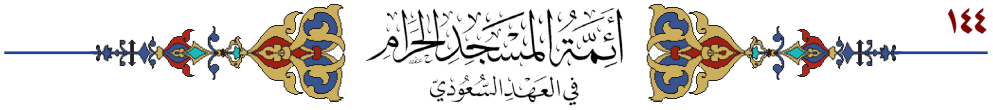 ١٤٤
أَئِمَّةُ المَسْجِدِ الحَرَامِ
في العَهْدِ السُّعُودِيّ